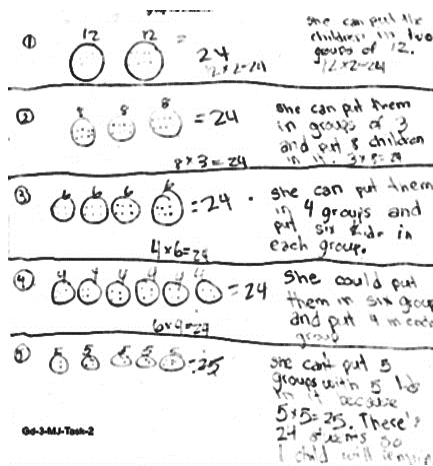 ①
12 12 =
24
12x2=24
she can put the
children in two
groups of 12.
12x2=24
②
8 8 8 = 24
8x3=24
she can put them
in groups of 3
and put 8 children
in it. 3x8=24
③
6 6 6 6 = 24
4x6=24
she can put them
in 4 groups and
put six kids in
each group.
④
4 4 4 4 4 4 = 24
6x4=24
She could put
them in six group
and put 4 in each
group
⑤
5 5 5 5 5 = 25
she can't put 5
groups with 5
in it because
5x5=25. There's
24 so
1 child will
Gd-3-MJ-Task-2